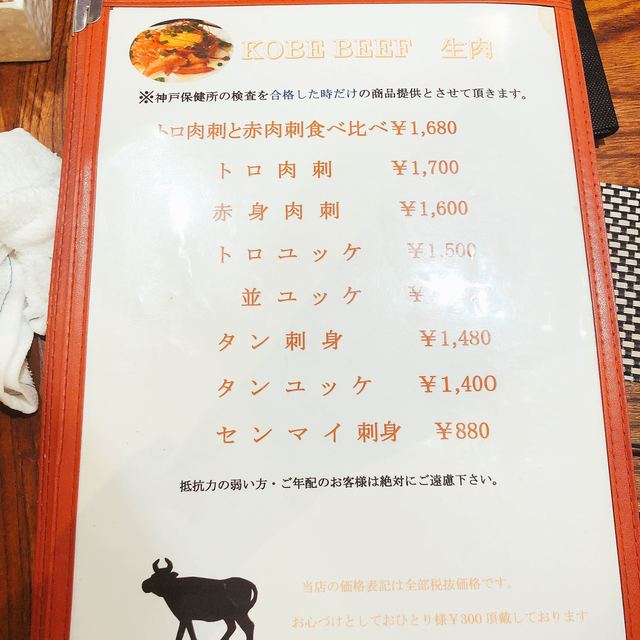 KOBE BEEF 生肉
※神戸保健所の検査を合格した時だけの商品提供とさせて頂きます。
トロ肉刺と赤肉刺食べ比べ¥1,680
トロ肉刺 ¥1,700
赤身肉刺 ¥1,600
トロユッケ ¥1,500
並ユッケ ¥
タン刺身 ¥1,480
タンユッケ ¥1,400
センマイ刺身 ¥880
抵抗力の弱い方・ご年配のお客様は絶対にご遠慮下さい。
当店の価格表記は全部税抜価格です。
お心づけとしておひとり様¥300頂戴しております